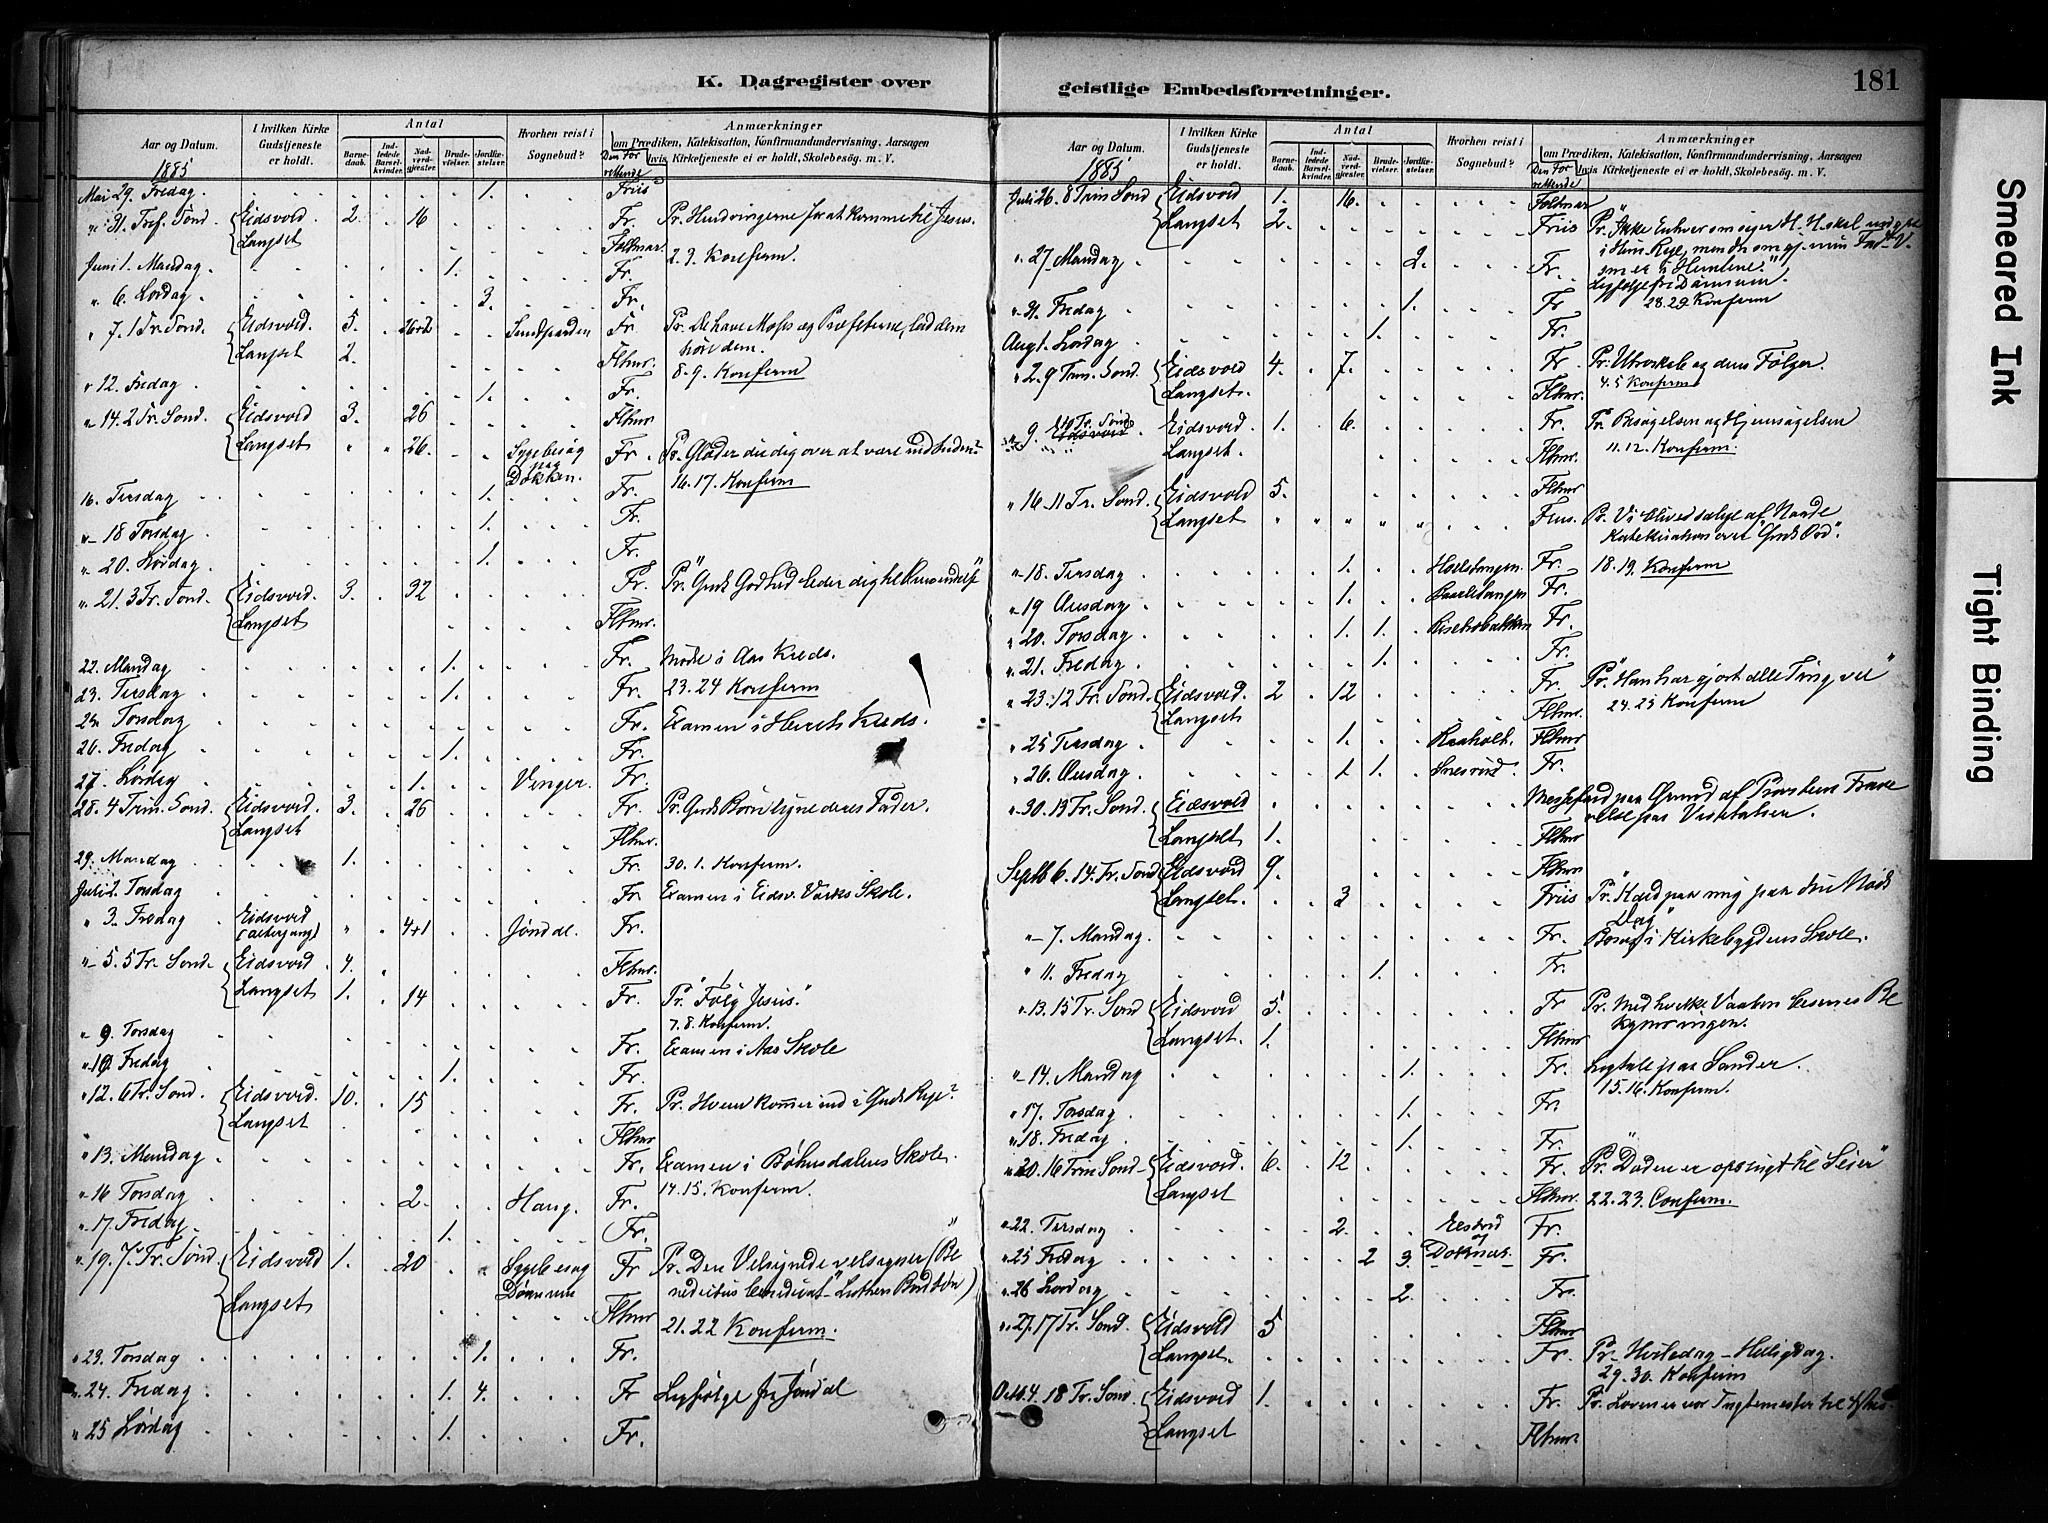 K. Dagregister over
Aar og Datum.
I hvilken Kirke Gudstjeneste er holdt.
Antal
Barnedaab.
Indledede Barselkvinder.
Nadverdgjester.
Brudevielser.
Jordfæstelser.
Hvorhen reist i Sognebud?
Anmærkninger
om Prædiken, Katekisation, Konfirmandundervisning, Aarsagen
hvis Kirketjeneste ei er holdt, Skolebesøg. m. V.
1885
Den Forrettende
Mai 29. Fredag 1. Friis
" 31. Tref. Sønd. Eidsvold 2. 16 Fr. Pr. Hindringerne for at komme til Jesus.
Langset Foltmar. 2. 3. Konferm.
Juni 1. Mandag 1. Fr.
" 6. Lørdag 3. Fr.
" 7. 1 Tr. Sønd. Eidsvold. 5. Fr. Pr. De have Moses og Profeterne, lad dem
høre dem.
Langset 2. Fltmr. 8. 9. Konferm
" 12. Fredag 1. Fr.
" 14. 2 Tr. Sønd. Eidsvold 3. 26 Fltmr
Langset " " 26. Sygebesøg Fr. Pr. Glæder du dig over at være
Dokken. 16. 17. Konferm
16. Tirsdag 1. Fr.
" 18 Torsdag 1. Fr.
" 20. Lørdag 1. Fr.
" 21. 3 Tr. Sønd. Eidsvold. 3. 32 Fr. Pr. "Guds Godhed leder dig til Omvendelse"
Langset Fltmr.
22. Mandag 1. Fr. Møde i Aas Kreds.
23. Tirsdag 1. Fr. 23. 24 Konferm
Torsdag Fr. Examen i Kreds.
26. Fredag 1. Fr.
27. Lørdag 1. Venger. Fr.
28. 4 Trin. Sønd. Eidsvold. 3. 26 Fr. Pr. Guds Børn ligne deres Fader.
Langset Fltmr.
29. Mandag 1. Fr. 30. 1. Konferm.
Juli 2. Torsdag Fr. Examen i Eidsv. Værks Skole.
" 3. Fredag Eidsvold " 4+1 Jønd al. Fr.
(altergang)
" 5. 5 Tr. Sønd. Eidsvold 4. Fltmr.
Langset 1. 14 Fr. Pr. "Følg Jesus."
7. 8. Konferm.
" 9. Torsdag Fr. Examen i Aas Skole
" 10. Fredag 1. Fr.
" 12. 6 Tr. Sønd. Eidsvold. 10. 15 Fr. Pr. Hvem kommer ind i Guds Rige?
Langset Fltmr
" 13. Mandag Fr. Examen i Bøhnsdalens Skole.
" 16 Torsdag 2. Haug. Fr. 14. 15. Konferm.
" 17. Fredag 1. Fr.
" 19. 7. Tr. Sønd Eidsvold 1. 20 Sygebesøg Fr Pr. Den Velsignede velsigner (Be
Dønnum nedictus benedicat" Luthers Bordbøn)
Langset Fltmr 21. 22 Konferm.
" 23. Torsdag 1. Fr.
" 24. Fredag 1. 4. Fr Ligfølge fra Jøndal
" 25 Lørdag 1. Fr.
geistlige Embedsforretninger.
181
Aar og Datum.
I hvilken Kirke Gudstjeneste er holdt.
Antal
Barnedaab.
Indledede Barselkvinder.
Nadverdgjester.
Brudevielser.
Jordfæstelser.
Hvorhen reist i Sognebud?
Anmærkninger
om Prædiken, Katekisation, Konfirmandundervisning, Aarsagen
hvis Kirketjeneste ei er holdt, Skolebesøg. m. V.
1885
Den Forrettende
Juli 26. 8 Trin Sønd Eidsvold 1. 16. Foltmar
Langset 2. Friis Pr. "Ikke Enhver som siger H. H. skal indgaa
" 27. Mandag 2. Fr. som er i Himlene."
Ligfølge fra Dønnum.
" 31. Fredag 1. Fr 28. 29. Konferm
Aug 1. Lørdag 1. Fr.
" 2. 9 Trin. Sønd. Eidsvold 4. 7. Fr. Pr. Utroskab og dens Følger.
Langset. Fltmr. 4. 5 Konferm
" 9. 10 Tr. Sønd. Eidsvold. 1. 6. Fr. Pr. Besøgelsen og Hjemsøgelsen
Langset. Fltmr. 11. 12. Konferm.
" 16. 11 Tr. Sønd. Eidsvold 5. Fltmr
Langset Friis. Pr. Vi blive salige af Naade
Katekisation over "Guds Ord".
" 18. Tirsdag 1. Fr. 18. 19. Konferm
" 19 Onsdag 1. Fr.
" 20. Torsdag 1. 1. Fr.
" 21. Fredag 1. Fr.
" 23. 12 Tr. Sønd. Eidsvold. 2 12 Fr. Pr. "Han har gjort alle Ting vel"
Langset Fltmr. 24. 25 Konferm
" 25 Tirsdag 1. Raaholt. Fltmr
" 26. Onsdag 1 1. Fr.
" 30. 13 Tr. Sønd. Eidsvold Messefald paa Grund af Provstens Fravæ
relse paa Visitatsen.
Langset 1. Fltmr
Septb 6. 14. Tr. Sønd Eidsvold 9. Fltmr
Langset. 3 Friis Pr. "Kald paa mig paa din Nøds
Dag"
" 7. Mandag. Fr. Besøg i Kirkebygdens Skole.
" 11. Fredag 1. Fr.
" 13. 15 Tr. Sønd Eidsvold 5. Fr Pr. Med hvilke Vaaben besejres Be
kymringen.
Langset. 1. Fltmr
" 14. Mandag 1. Fr. Ligtale paa Sander.
15. 16. Konferm.
" 17. Torsdag 1. Fr.
" 18. Fredag 1. Fr.
" 20. 16 Trin Sønd Eidsvold. 6. 12 Fr. Pr. "Døden er opslugt til Seier"
Langset Fltmr. 22. 23. Conferm.
" 22. Tirsdag 2. Fr.
" 25 Fredag 2 3. Fr.
" 26 Lørdag 2. Fr.
" 27. 17 Tr. Sønd. Eidsvold 5 Fltmr
Langset. Fr. Pr. Hviledag – Helligdag.
29. 30. Konferm
Octb. 4. 18 Tr. Sønd Eidsvold 1. Fr. Pr. Loven er vor Tugtemester til Chr.
Langset Fltmr.
Smeared Ink
Tight Binding